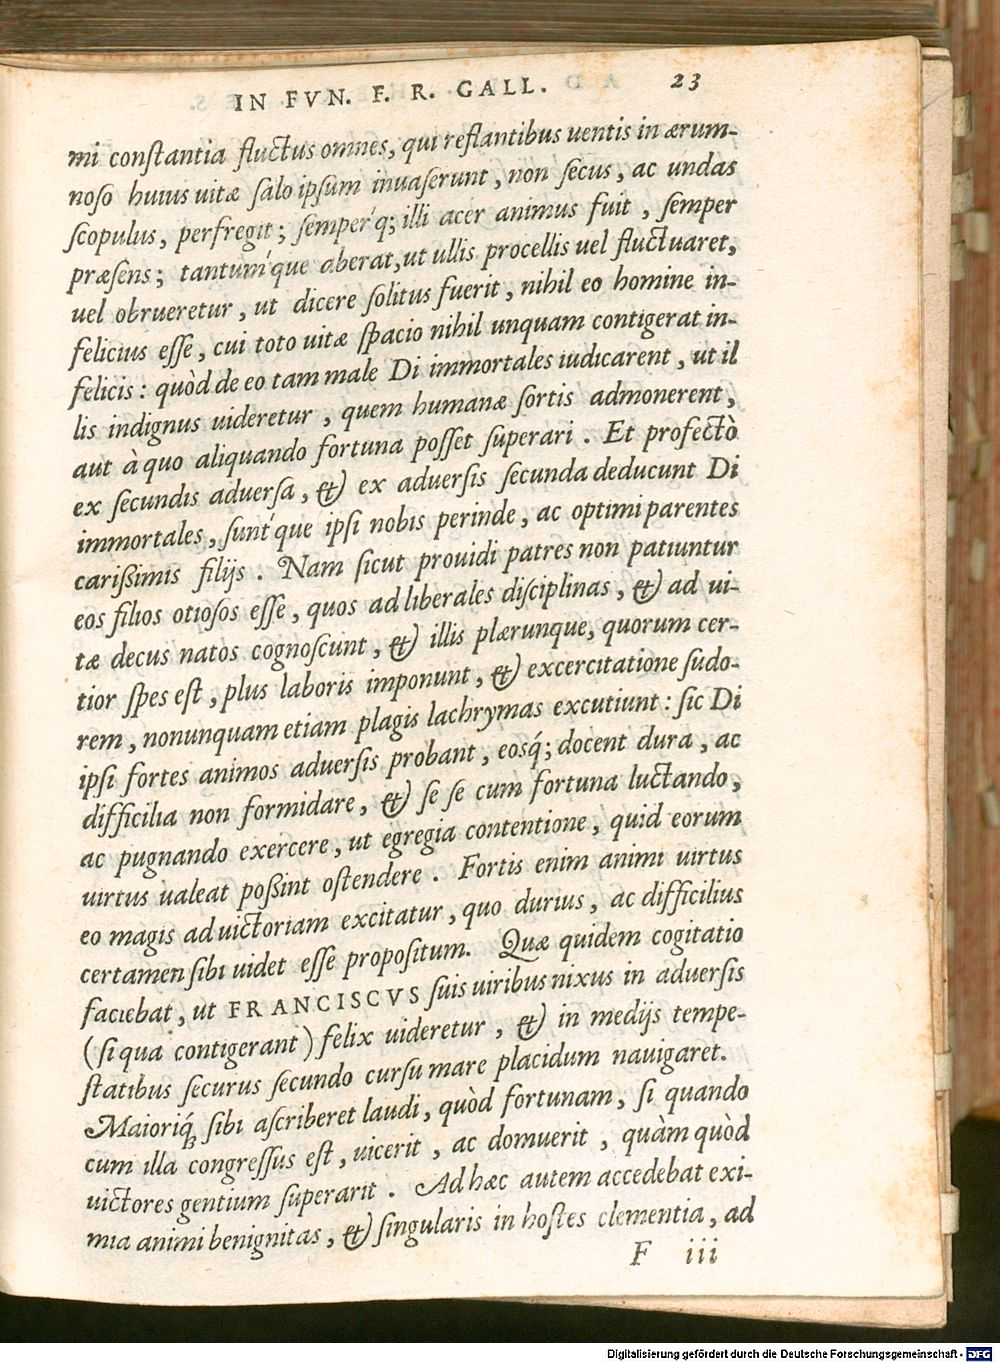 IN FVN. F. R. GALL. 23
mi constantia fluctus omnes, qui reflantibus uentis in ærum-
noso huius uitæ salo ipsum inuaserunt, non secus, ac undas
scopulus, perfregit; semper´q; illi acer animus fuit, semper
præsens; tantum´que aberat, ut ullis procellis uel fluctuaret,
uel obrueretur, ut dicere solitus fuerit, nihil eo homine in-
felicius esse, cui toto uitæ spacio nihil unquam contigerat in-
felicis: quòd de eo tam male Di immortales iudicarent, ut il
lis indignus uideretur, quem humanæ sortis admonerent,
aut à quo aliquando fortuna posset superari. Et profectò
ex secundis aduersa, & ex aduersis secunda deducunt Di
immortales, sunt´que ipsi nobis perinde, ac optimi parentes
carißimis filijs. Nam sicut prouidi patres non patiuntur
eos filios otiosos esse, quos ad liberales disciplinas, & ad ui-
tæ decus natos cognoscunt, & illis plærunque, quorum cer-
tior spes est, plus laboris imponunt, & excercitatione sudo-
rem, nonunquam etiam plagis lachrymas excutiunt: sic Di
ipsi fortes animos aduersis probant, eosq́; docent dura, ac
difficilia non formidare, & se se cum fortuna luctando,
ac pugnando exercere, ut egregia contentione, quid eorum
uirtus ualeat poßint ostendere. Fortis enim animi uirtus
eo magis ad uictoriam excitatur, quo durius, ac difficilius
certamen sibi uidet esse propositum. Quæ quidem cogitatio
faciebat, ut FRANCISCVS suis uiribus nixus in aduersis
(si qua contigerant) felix uideretur, & in medijs tempe-
statibus securus secundo cursu mare placidum nauigaret.
Maioriq́; sibi ascriberet laudi, quòd fortunam, si quando
cum illa congressus est, uicerit, ac domuerit, quàm quòd
uictores gentium superarit. Ad hæc autem accedebat exi-
mia animi benignitas, & singularis in hostes clementia, ad
F iii
Digitalisierung gefördert durch die Deutsche Forschungsgemeinschaft - DFG